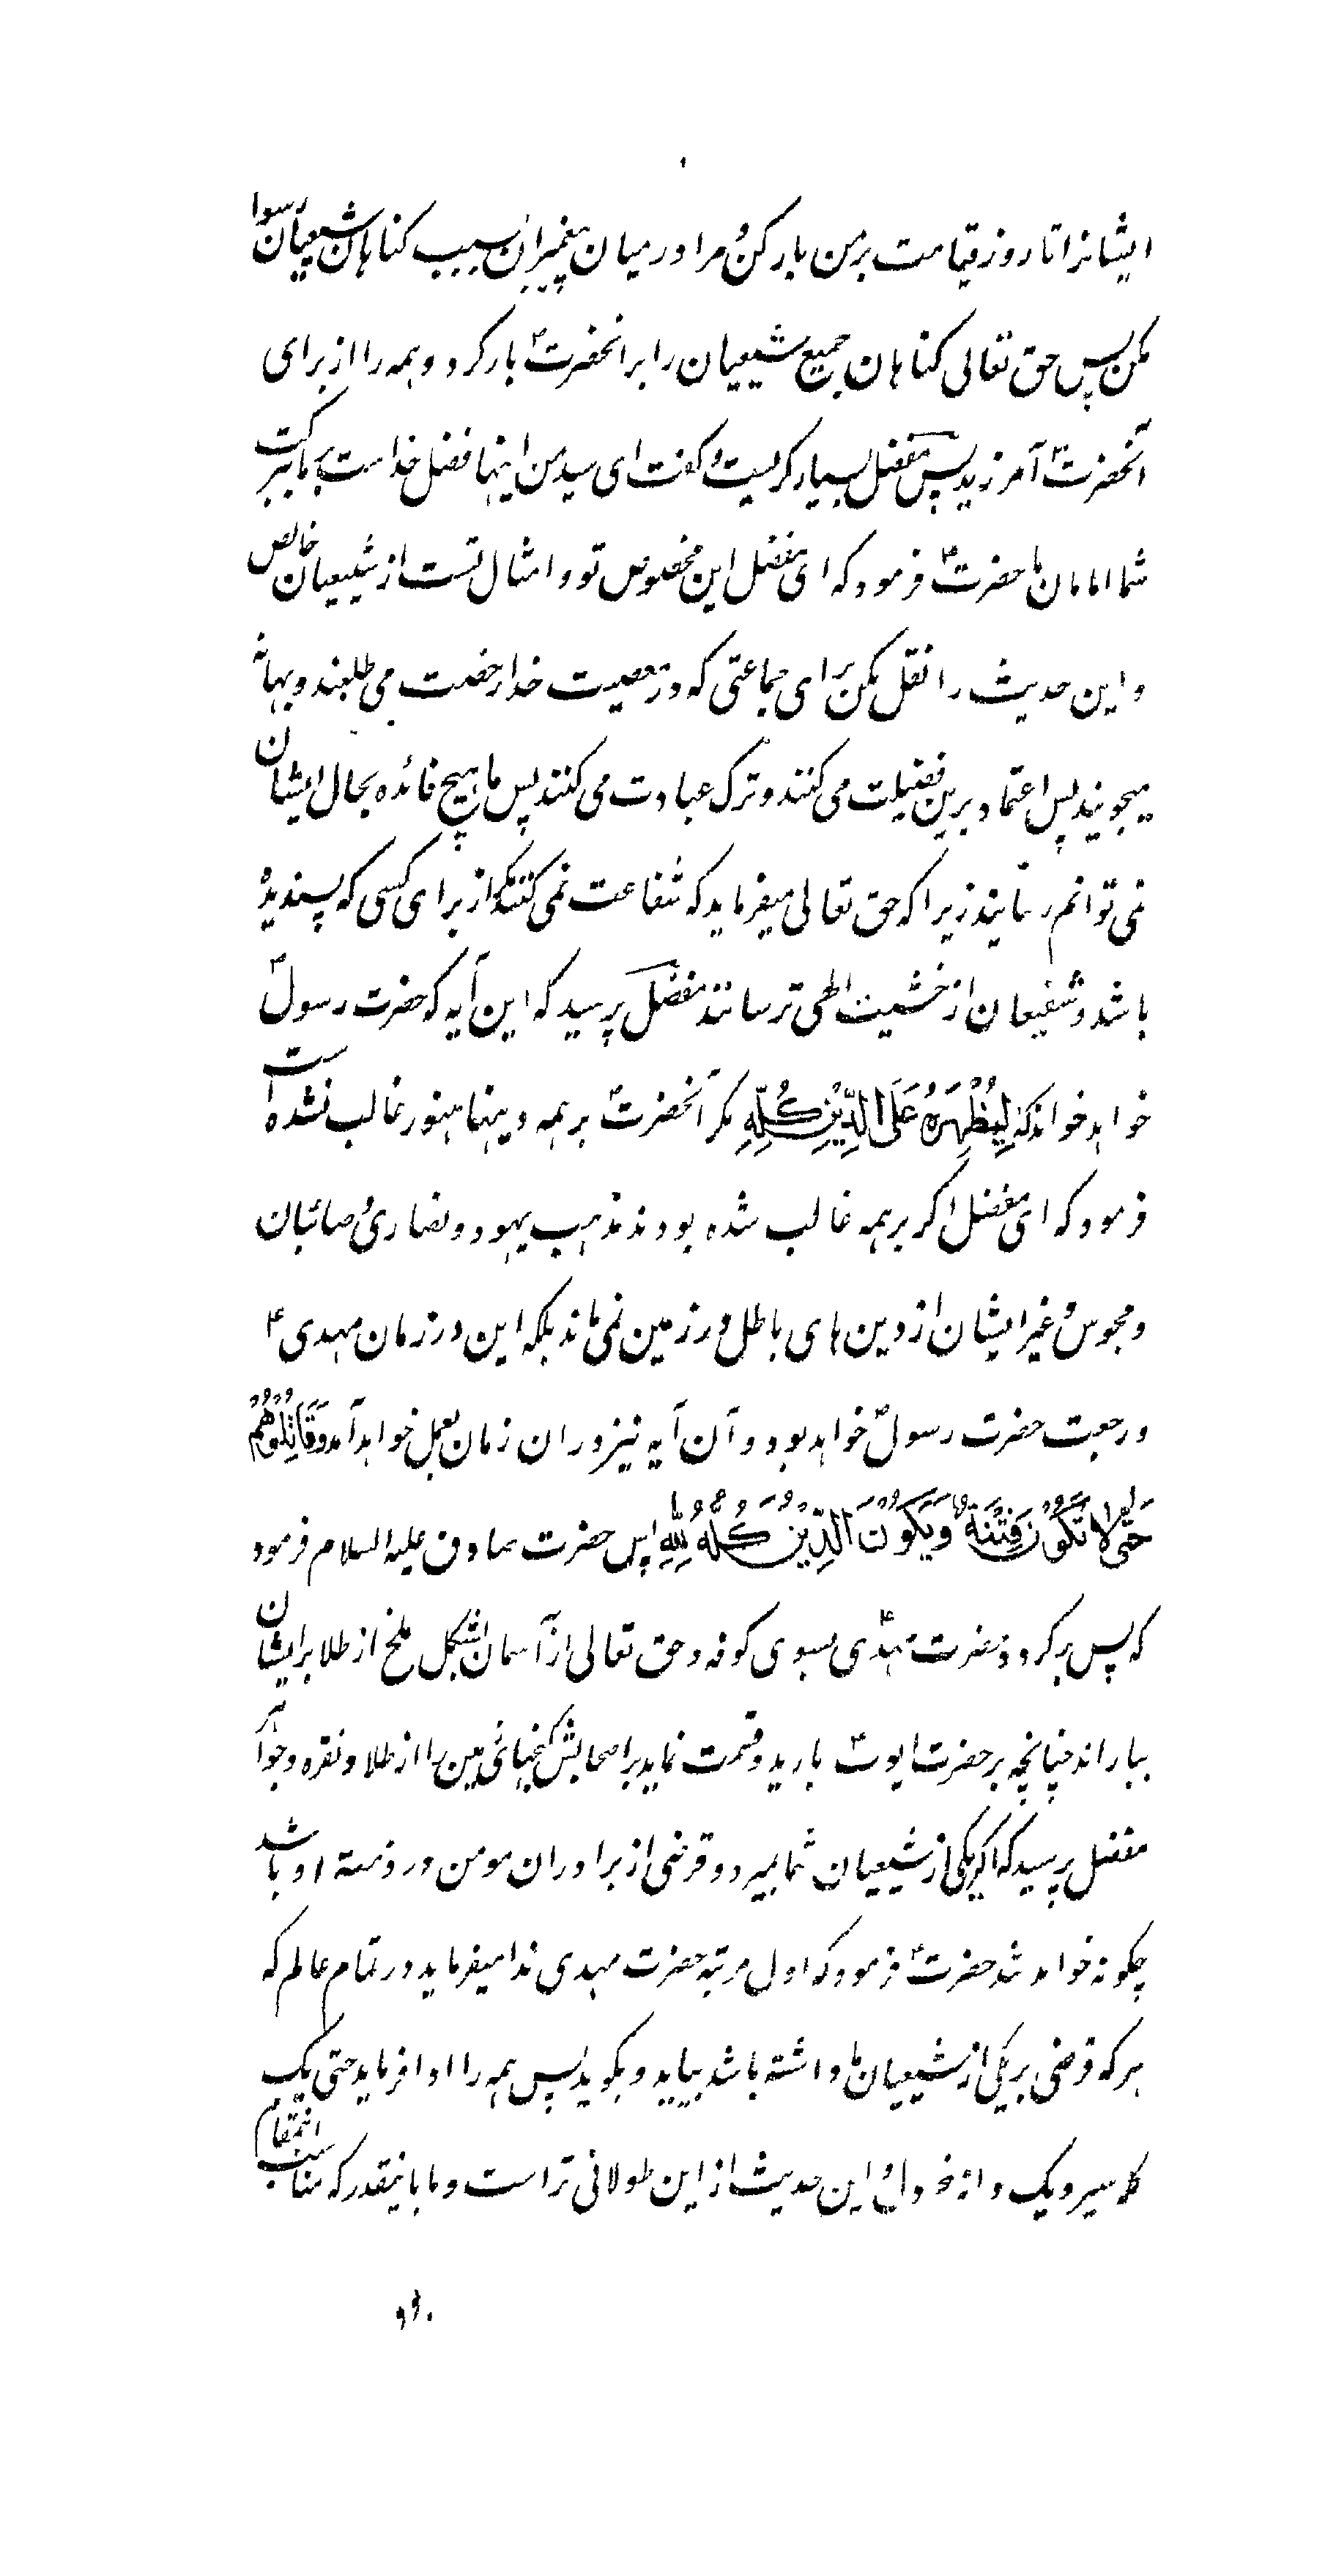 ایشانرا تا روز قیامت بر من بار کن و مرا در میان پیغمبران بسبب کناهان شیعیان رسوا
مکن پس حق تعالی کناهان جمیع شیعیان را بر انحضرت ؐ بار کرد و همه را از برای
آنحضرت ؐ آمرزید پس مفضل بسیار کریست و کفت ای سید من اینها فضل خداست بر ما ببرکت
شما امامان ما حضرت ؑ فرمود که ای مفضل این مخصوص تو و امثال تست از شیعیان خالص
و این حدیث را نقل مکن برای جماعتی که در معصیت خدا رخصت می طلبند و بهانه
میجویند پس اعتماد برین فضیلت می کنند و ترک عبادت می کنند پس ما هیچ فائده بحال ایشان
نمی توانم رسانید زیرا که حق تعالی میفرماید که شفاعت نمی کنند مکر از برای کسی که پسندیدهٔ
باشد و شفیعان از خشیت الهی ترسانند مفضل پرسید که این آیه که حضرت رسول ؐ
خواهد خواند که لِیُظْهِرَهُ عَلَی الدِّیْنِ کُلِّهِ مکر آنحضرت ؐ بر همه دینها هنوز غالب نشده است
فرمود که ای مفضل اکر بر همه غالب شده بودند مذهب یهود و نصاری و صائبان
و مجوس و غیر ایشان از دین های باطل در زمین نمی ماند بلکه این در زمان مهدی ؑ
و رجعت حضرت رسول ؐ خواهد بود و آن آیه نیز در ان زمان بعمل خواهد آمد وَقَاتِلُوْهُمْ
حَتّٰی لَا تَکُوْنَ فِتْنَةٌ وَیَکُوْنَ الدِّیْنُ کُلُّهُ لِلّٰهِ پس حضرت صادق علیه السلام فرمود
که پس برکردد حضرت مهدی ؑ بسوی کوفه و حق تعالی از آسمان بشکل ملخ از طلا بر ایشان
بباراند چنانچه بر حضرت ایوب ؑ بارید و قسمت نماید بر اصحابش کنجهائی زمین را از طلا و نقره و جواهر
مفضل پرسید که اکر یکی از شیعیان شما بمیرد و قرضی از برادران مومن در ذمته او باشد
چکونه خواهد شد حضرت ؑ فرمود که اول مرتبه حضرت مهدی ندا میفرماید در تمام عالم که
هر که قرضی بر یکی از شیعیان ما داشته باشد بیاید و بکوید پس همه را ادا فرماید حتی یک
کله سیر و یک دانه خردل و این حدیث از این طولانی تر است و ما باینقدر که مناسب انمقام